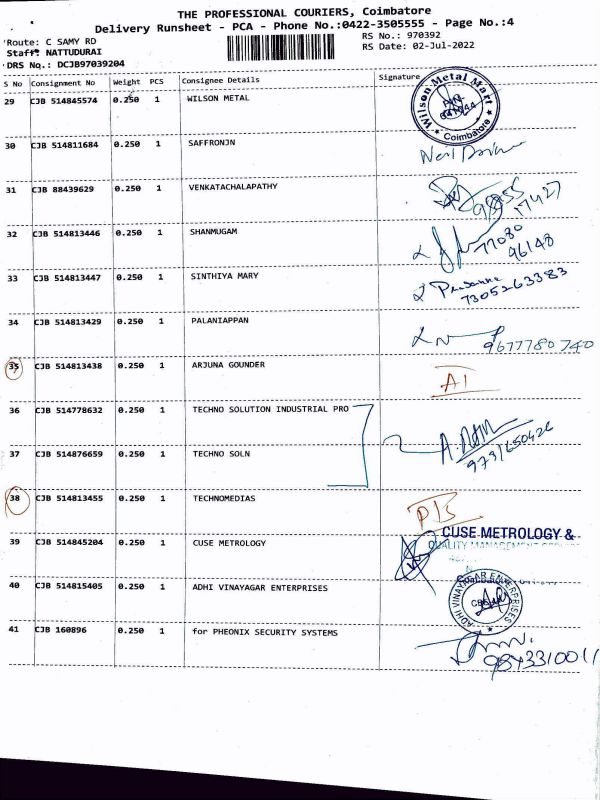 THE PROFESSIONAL COURIERS, Coimbatore
Delivery Runsheet - PCA - Phone No.:0422-3505555 - Page No.:4
Route: C SAMY RD RS No.: 970392
Staff: NATTUDURAI RS Date: 02-Jul-2022
DRS No.: DCJB97039204
S No Consignment No Weight PCS Consignee Details Signature
29 CJB 514845574 0.250 1 WILSON METAL Wilson Metal Mart Coimbatore
30 CJB 514811684 0.250 1 SAFFRONJN
31 CJB 88439629 0.250 1 VENKATACHALAPATHY 17427
32 CJB 514813446 0.250 1 SHANMUGAM 77080 96148
33 CJB 514813447 0.250 1 SINTHIYA MARY Prasanna 7305263383
34 CJB 514813429 0.250 1 PALANIAPPAN 9677780740
35 CJB 514813438 0.250 1 ARJUNA GOUNDER A1
36 CJB 514778632 0.250 1 TECHNO SOLUTION INDUSTRIAL PRO
37 CJB 514876659 0.250 1 TECHNO SOLN
38 CJB 514813455 0.250 1 TECHNOMEDIAS
39 CJB 514845204 0.250 1 CUSE METROLOGY CUSE METROLOGY &
40 CJB 514815405 0.250 1 ADHI VINAYAGAR ENTERPRISES ADHI VINAYAGAR ENTERPRISES
41 CJB 160896 0.250 1 for PHEONIX SECURITY SYSTEMS